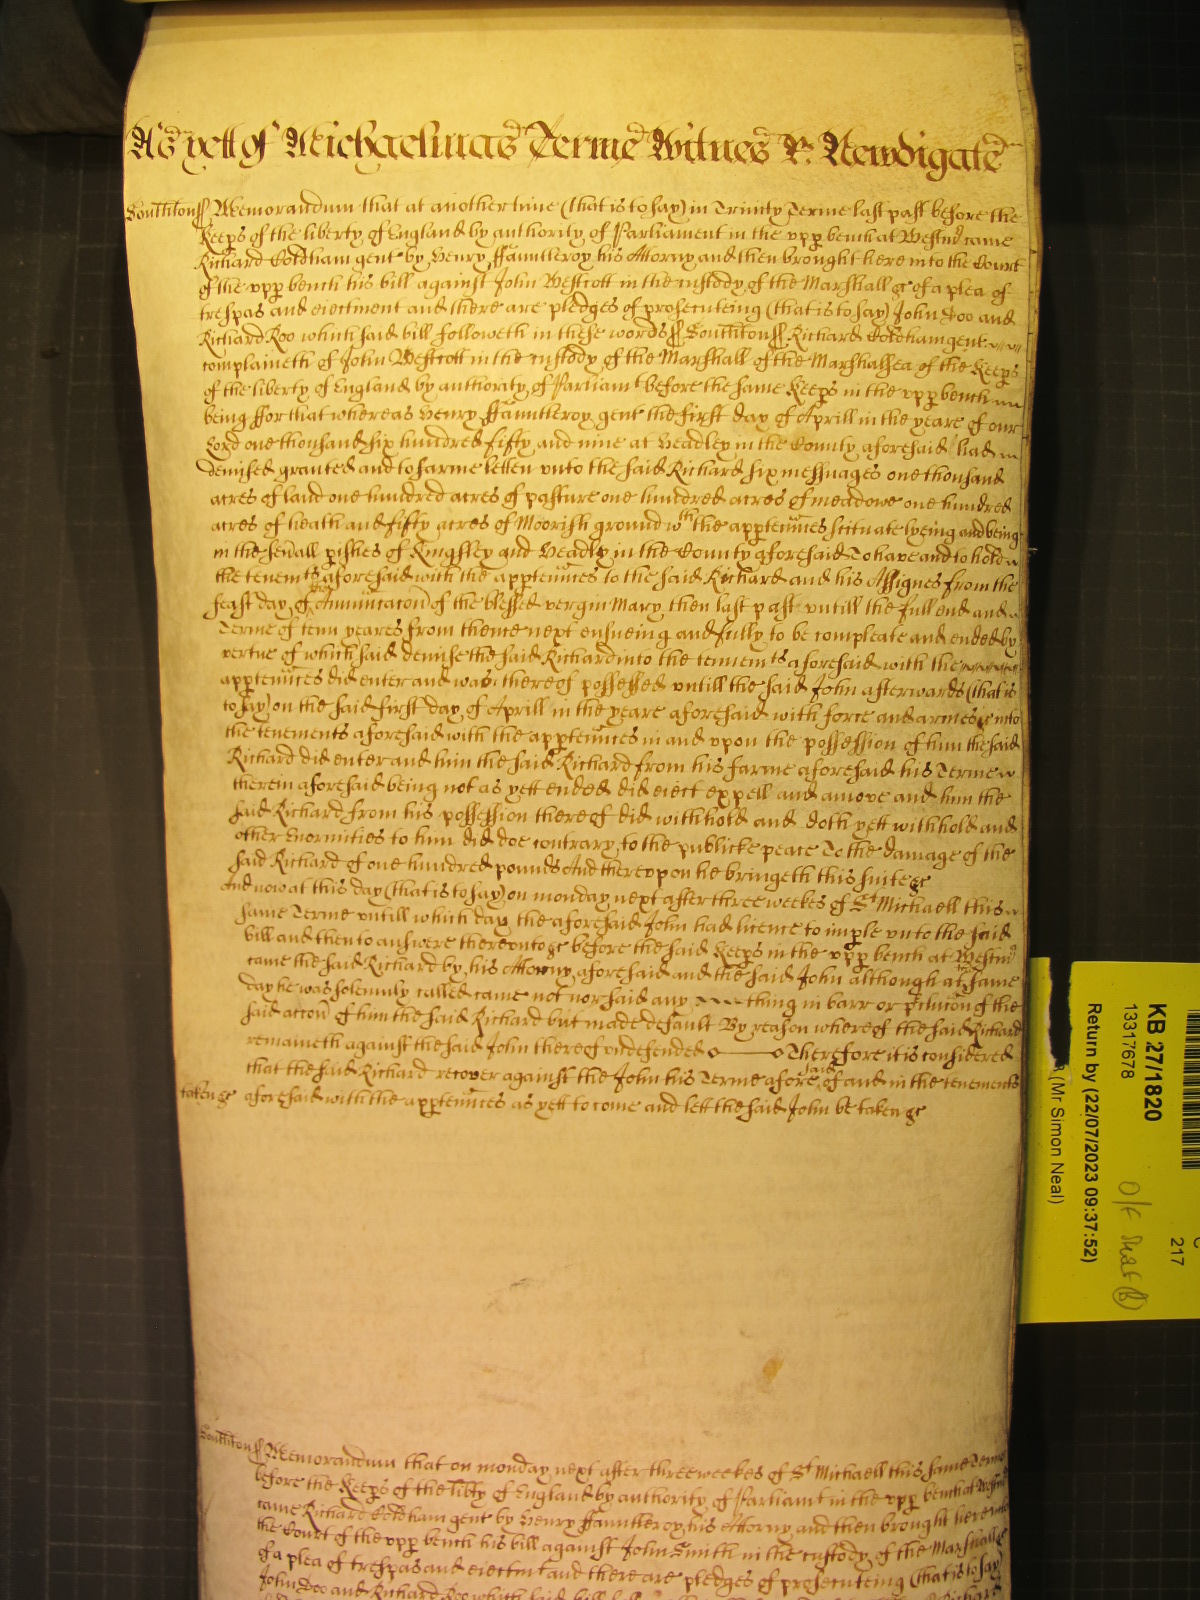 As yett of Michaelmas Terme Witnes R: Newdigate
Southtonss Memorandum that at another time (that is to say) in Trinity Terme last past before the
Keeps of the liberty of England by authority of Parliament in the vpp bench at Westmr came
Richard Coldham gent by Henry Ffauntleroy his Attorny and then brought here into the Court
of the vpp bench his bill against John Westcott in the custody of the Marshall &c of a plea of
trespas and eiectment and there are pledges of prosecuteing (that is to say) John Doo and
Richard Roo which said bill followeth in these words ss Southtonss Richard Coldham gent
complaineth of John Westcott in the custody of the Marshall of the Marshalsea of the Keeps
of the liberty of England by authority of Parliamt before the same Keeps in the vpp bench
being ffor that whereas Henry Ffauntleroy gent the first day of Aprill in the yeare of our
Lord one thousand six hundred fifty and nine at Headley in the County aforesaid had
demised granted and to farme letten vnto the said Richard six messuages one thousand
acres of land one hundred acres of pasture one hundred acres of meadowe one hundred
acres of heath and fifty acres of Moorish ground wth the apptennces scituate lyeing and being
in the seuall pishes of Kingsley and Headly in the County aforesaid To have and to hold
the tenemts aforesaid with the apptennces to the said Richard and his Assignes from the
feast day of the Annuntiacon of the blessed vergin Mary then last past vntill the full end and
Terme of tenn yeares from thence next ensueing and fully to be compleate and ended by
vertue of which said demise the said Richard into the tenemts aforesaid with the
apptennces did enter and was thereof possessed vntill the said John afterwards (that is
to say) on the said first day of Aprill in the yeare aforesaid with force and armes &c into
the tenements aforesaid with the apptennces in and vpon the possession of him the said
Richard did enter and him the said Richard from his farme aforesaid his Terme
therein aforesaid being not as yett ended did eiect expell and amove and him the
said Richard from his possession thereof did withhold and doth yett withhold and
other Enormities to him did doe contrary to the publicke peace To the damage of the
said Richard of one hundred pounds And therevpon he bringeth this suite &c
And now at this day (that is to say) on monday next after three weekes of St Michaell this
same Terme vntill which day the aforesaid John had licence to imple vnto the said
bill and then to answere therevnto &c before the said Keeps in the vpp bench at Westmr
came the said Richard by his Attorny aforesaid and the said John although at the same
day he was solemnly called came not nor said any thing in barr or pclucon of the
said accon of him the said Richard but made default By reason whereof the said Richard
remaineth against the said John thereof vndefended Therefore it is considered
that the said Richard recover against the John his Terme aforesaid of and in the tenements
taken &c aforesaid with the apptennces as yett to come and lett the said John be taken &c
Southtonss Memorandum that on monday next after three weekes of St Michaell this same Terme
before the Keeps of the libty of England by authority of Parliamt in the vpp bench at Westmr
came Richard Coldham gent by Henry Ffauntleroy his Attorny and then brought here into
the Court of the vpp bench his bill against John Smith in the custody of the Marshall &c
of a plea of trespas and eiectmt and there are pledges of prosecuteing (that is to say)
John Doo and Richard Roo which said bill
KB 27/1820
13317678
Return by (22/07/2023 09:37:52)
(Mr Simon Neal)
217
O/F